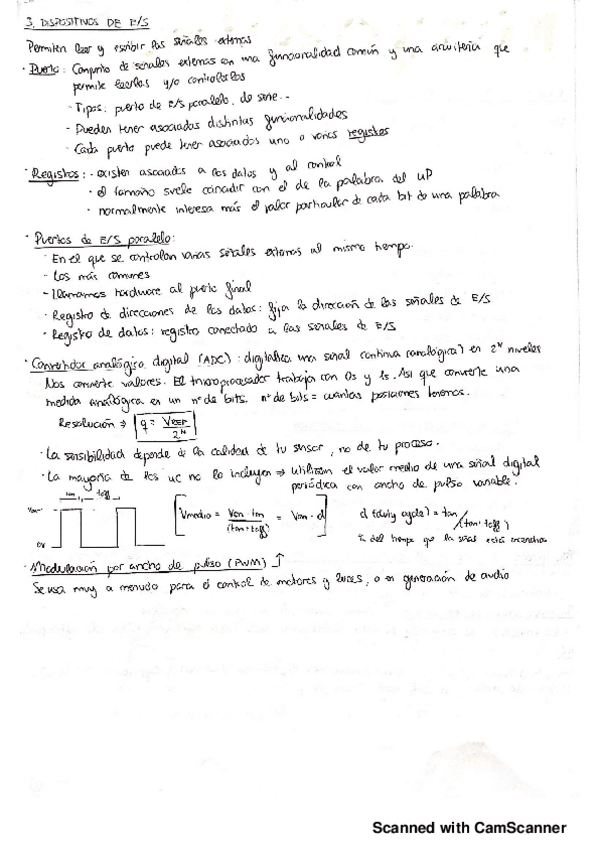 3. DISPOSITIVOS DE E/S
Permiten leer y escribir las señales externas
· Puerto: Conjunto de señales externas con una funcionalidad común y una circuitería que
permite leerlas y/o controlarlas
- Tipos: puerto de E/S paralelo, de serie...
- Pueden tener asociadas distintas funcionalidades
- Cada puerto puede tener asociados uno o varios registros
· Registros: · existen asociados a los datos y al control
· el tamaño suele coincidir con el de la palabra del uP
· normalmente interesa más el valor particular de cada bit de una palabra
· Puertos de E/S paralelo:
· En el que se controlan varias señales externas al mismo tiempo.
- Los más comunes
- Llamamos hardware al puerto final
· Registro de direcciones de los datos: fija la dirección de las señales de E/S
· Registro de datos: registro conectado a las señales de E/S
· Convertidor analógico digital (ADC): digitaliza una señal continua (analógica) en 2^N niveles
Nos convierte valores. El microprocesador trabaja con 0s y 1s. Así que convierte una
medida analógica en un nº de bits. nº de bits = cuantas posiciones tenemos.
Resolución ⇒ q = VREF / 2^N
· La sensibilidad depende de la calidad de tu sensor, no de tu proceso.
· La mayoría de los uc no lo incluyen ⇒ utilizan el valor medio de una señal digital
periódica con ancho de pulso variable.
ton toff
Von
0V
[Vmedio = Von · ton / (ton + toff) = Von · d]
d (duty cycle) = ton / (ton + toff)
% del tiempo que la señal está encendida
· Modulación por ancho de pulso (PWM) ↑
Se usa muy a menudo para el control de motores y luces, o en generación de audio
Scanned with CamScanner